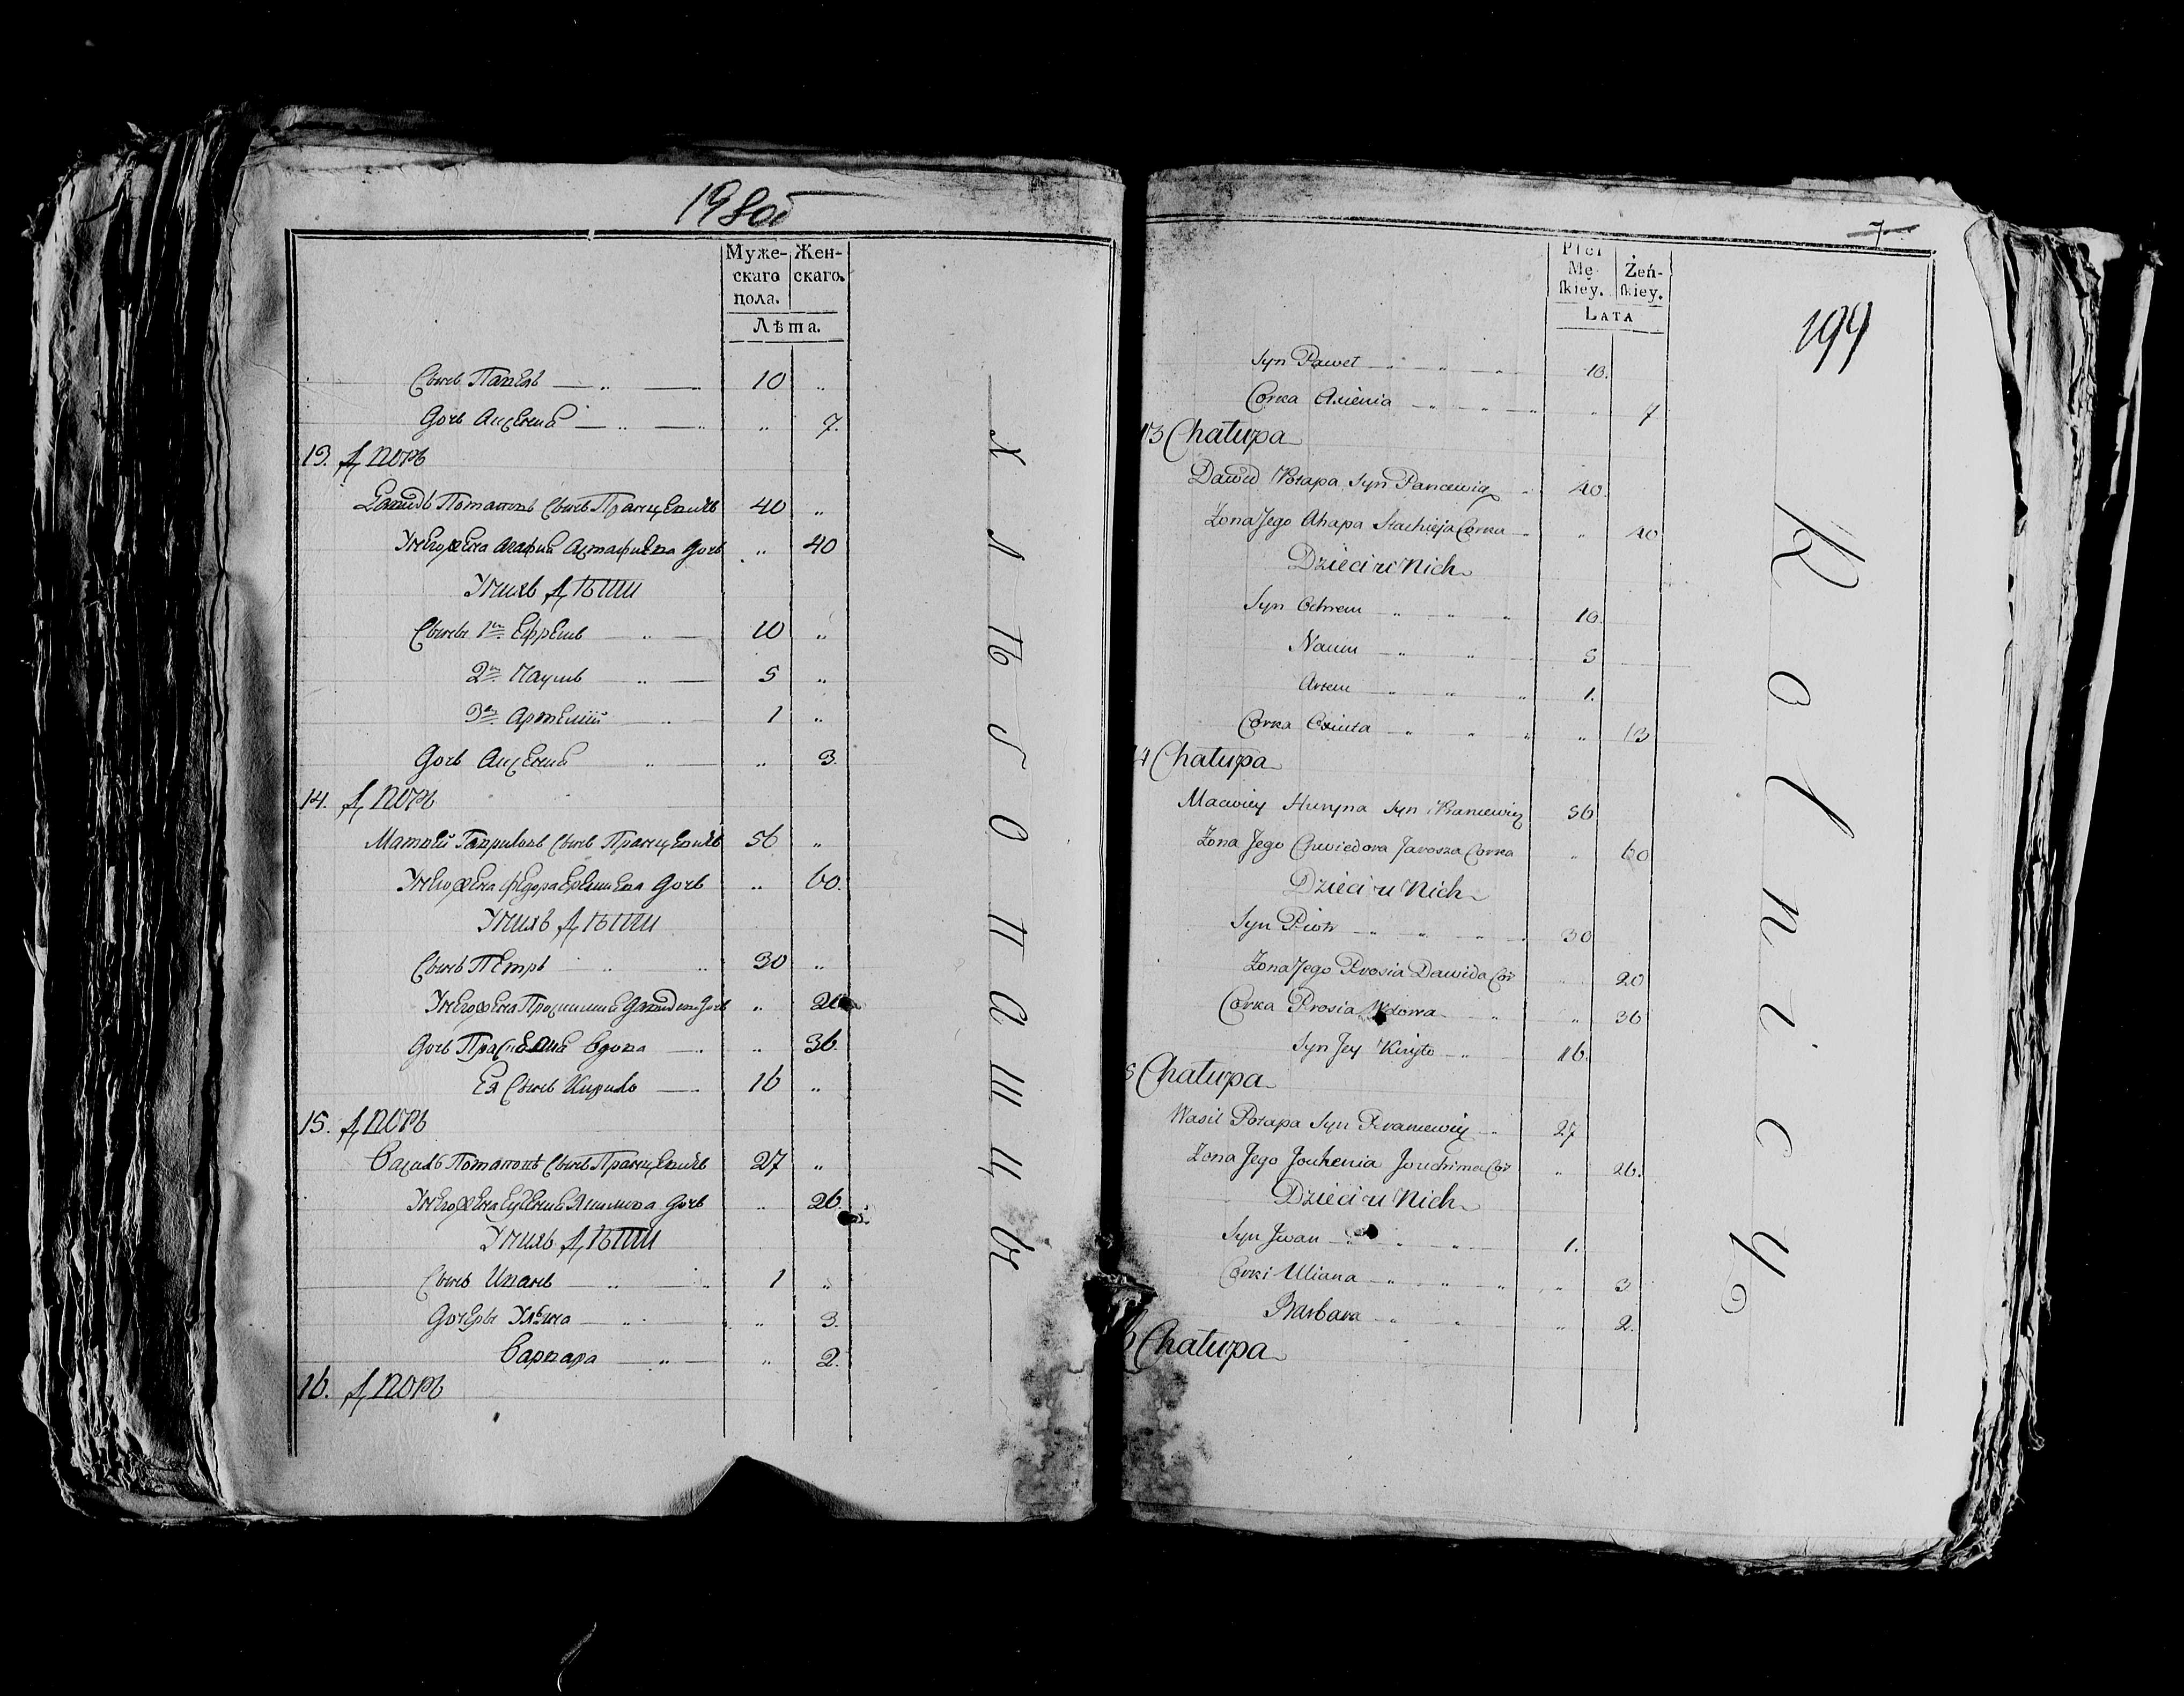 198об
Муже-
скаго
пола.
Жен-
скаго.
Лѣта.
Сынъ Павелъ 10 „
Дочь Аксенія „ 7.
13. Дворъ
Давидъ Потаповъ Сынъ Пранцкевичь 40 „
У него жена Агафія Астафьева Дочь „ 40
У нихъ Дѣти
Сыны 1й Ефремъ 10 „
2й Наумъ 5 „
3й Артемій 1 „
Дочь Аксенія „ 3.
14. Дворъ
Матвей Гавриловъ Сынъ Пранцкевичь 56 „
У него жена Федора Еремиева Дочь „ 60.
У нихъ Дѣти
Сынъ Петръ 30 „
У него жена Давидова Дочь „ 20
Дочь Прасковія Вдова „ 36.
Ея Сынъ Кирило 16 „
15. Дворъ
Василь Потаповъ Сынъ Пранцкевичь 27 „
У него жена Евгенія Якимова Дочь „ 26.
У нихъ Дѣти
Сынъ Иванъ 1 „
Дочери Ульяна „ 3.
Варвара „ 2.
16. Дворъ
Хлѣбопашцы
7
199
Płci
Mę-
ſkiey.
Żeń-
ſkiey.
Lata
Syn Paweł 10.
Corka Axienia „ 7
13 Chałupa
Dawid Potapa Syn Pancewicz 40.
Żona Jego Ahapa Stachieja Corka „ 40
Dzieci u Nich
Syn Ochrem 10.
Naum 5
Artem 1.
Corka Oxiuta „ 13
4 Chałupa
Maciwiey Huryna Syn Praniewicz 56
Żona Jego Chwiedora Jarosza Corka „ 60
Dzieci u Nich
Syn Piotr 30
Żona Jego Prosia Dawida Cor 20
Corka Prosia Wdowa „ 36
Syn Jey Kiryło 16.
5 Chałupa
Wasil Potapa Syn Praniewicz 27
Żona Jego Jouhenia Jouchima Cor „ 26.
Dzieci u Nich
Syn Jwan 1.
Corki Uliana „ 3
Barbara „ 2.
6 Chałupa
Rolnicy